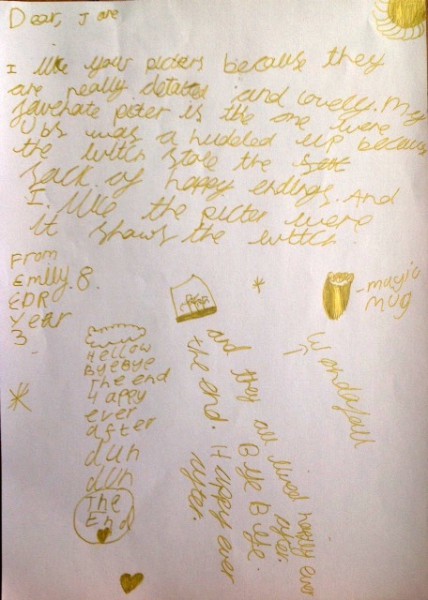 Dear, Jane
I like your picters because they
are really detaled and lovely. My
favenate picter is the one were
was a huddeled up because
the witch stole the
Sack of happy endings. And
I like the picter were
it shows the wittch.
From
Emily. 8.
EDR
Year
3
- magic
mug
Wondafall
Hellow
Bye Bye
The end
Happy
ever
after
duh
duh
The
End
and they all lived happily ever
after.
Bye Bye.
the end. Happy ever
after.